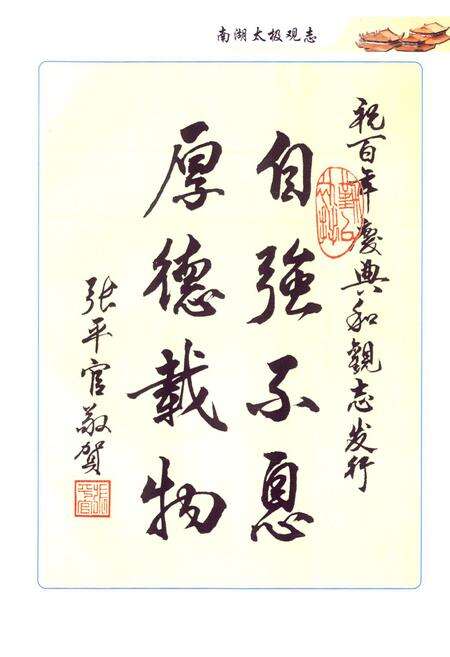 南湖太极观志
祝百年慶典和觀志发行
自強不息
厚德載物
张平官敬贺